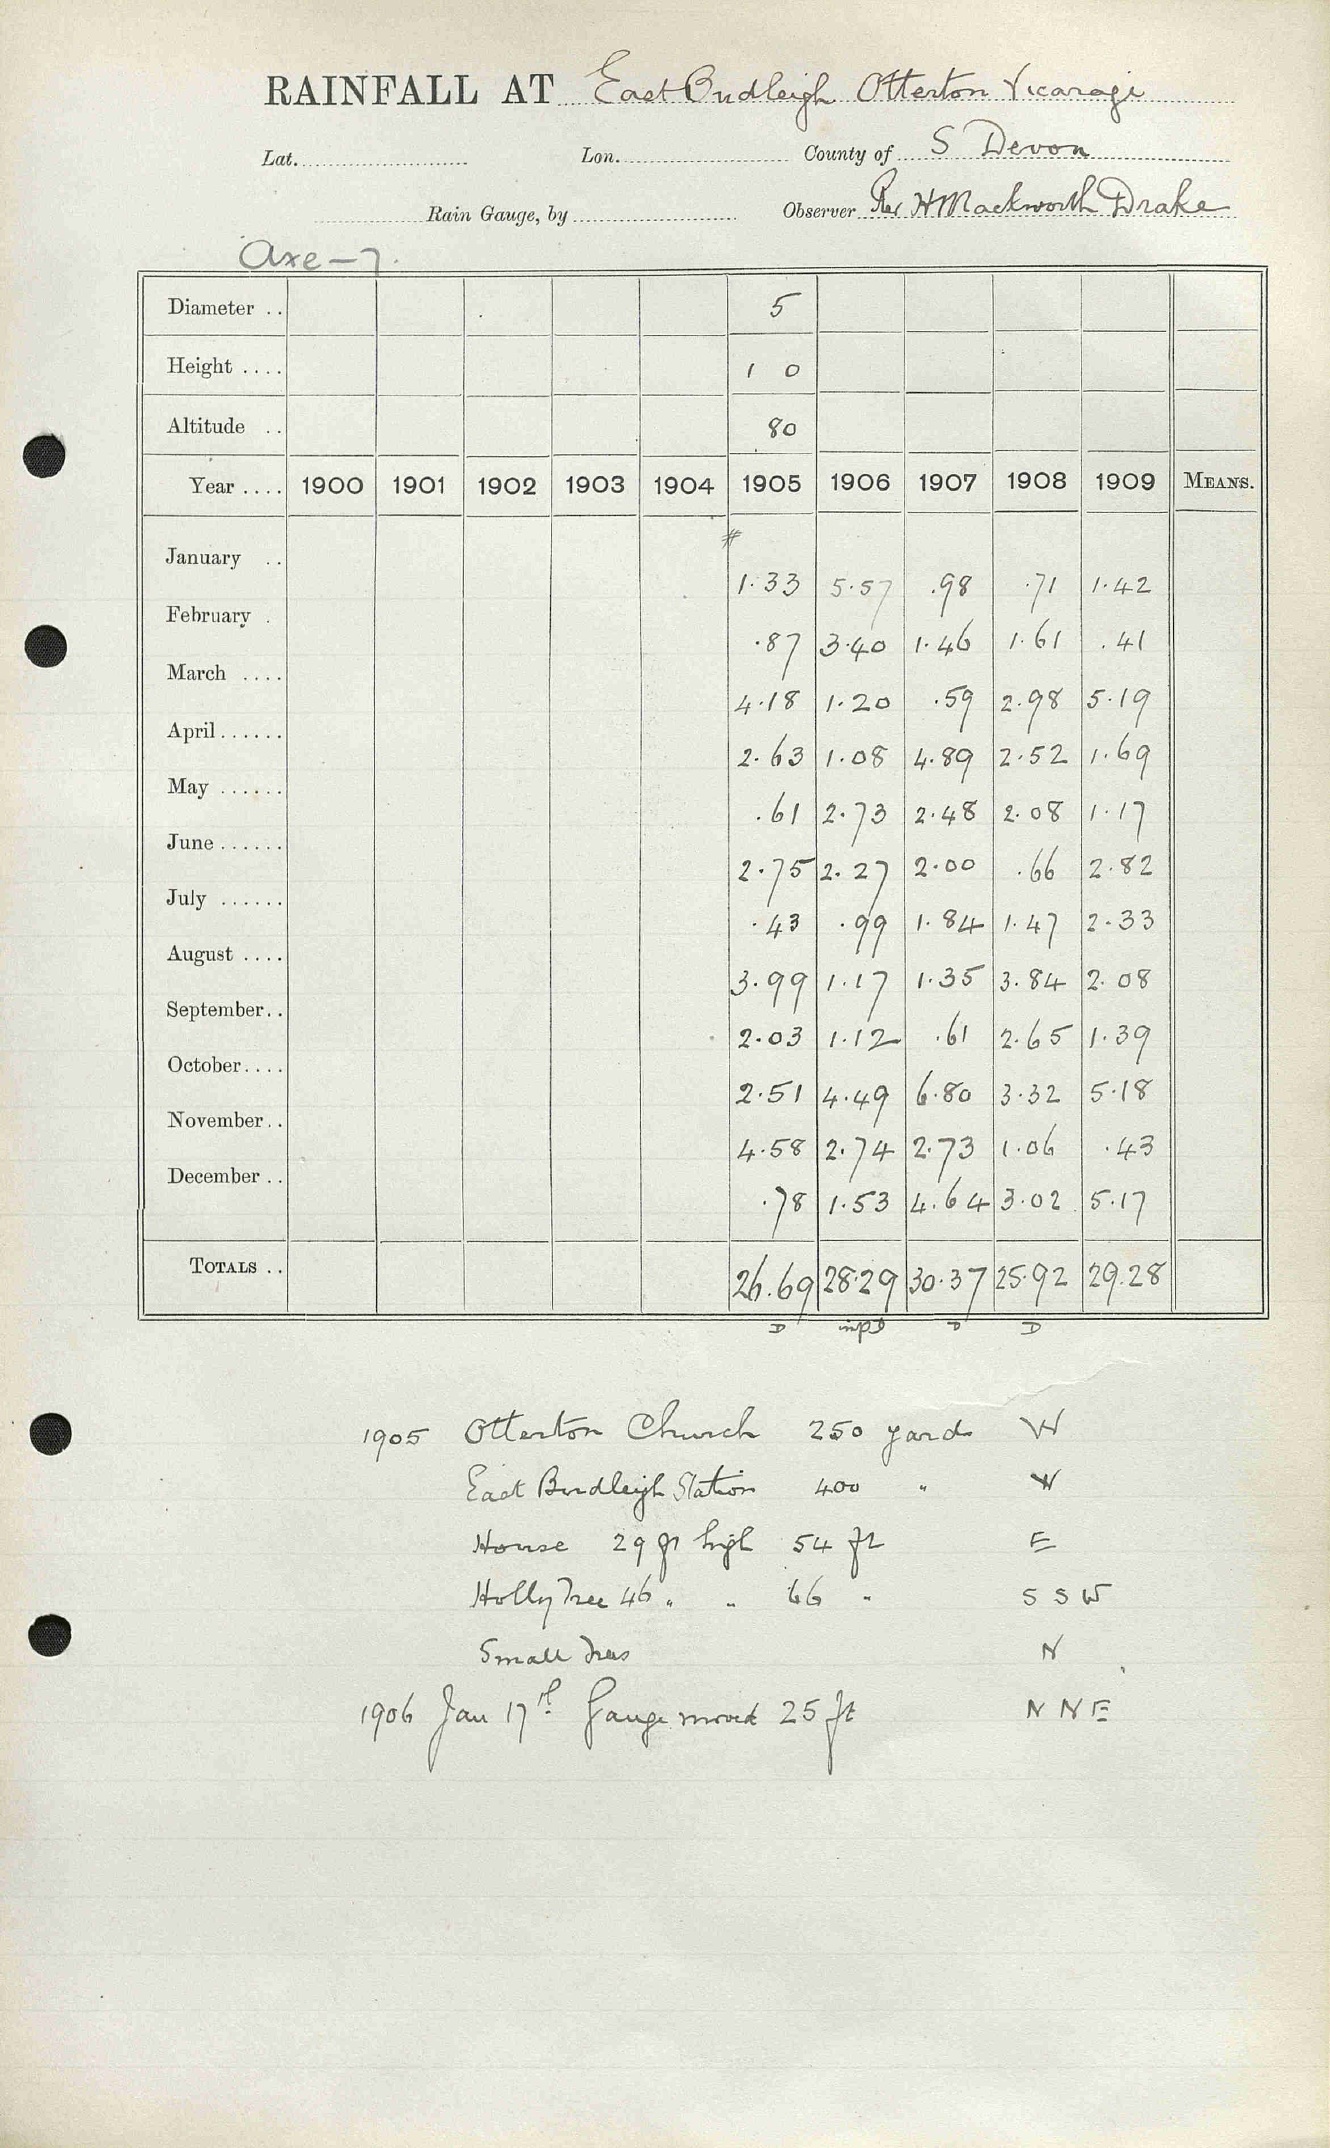 RAINFALL AT East Budleigh Otterton Vicarage
Lat. Lon. County of S Devon
Rain Gauge, by Observer Rev H Mackworth Drake
Axe-7.
Diameter .. 5
Height .... 1 0
Altitude .. 80
Year .... 1900 1901 1902 1903 1904 1905 1906 1907 1908 1909 MEANS.
#
January .. 1.33 5.57 .98 .71 1.42
February . .87 3.40 1.46 1.61 .41
March .... 4.18 1.20 .59 2.98 5.19
April...... 2.63 1.08 4.89 2.52 1.69
May ...... .61 2.73 2.48 2.08 1.17
June...... 2.75 2.27 2.00 .66 2.82
July ...... .43 .99 1.84 1.47 2.33
August .... 3.99 1.17 1.35 3.84 2.08
September.. 2.03 1.12 .61 2.65 1.39
October.... 2.51 4.49 6.80 3.32 5.18
November.. 4.58 2.74 2.73 1.06 .43
December .. .78 1.53 4.64 3.02 5.17
TOTALS .. 26.69 28.29 30.37 25.92 29.28
1905 Otterton Church 250 yards W
East Budleigh Station 400 " W
House 29 ft high 54 ft E
Holly Tree 46 " " 66 " S S W
Small Trees N
1906 Jan 17th Gauge moved 25 ft N N E